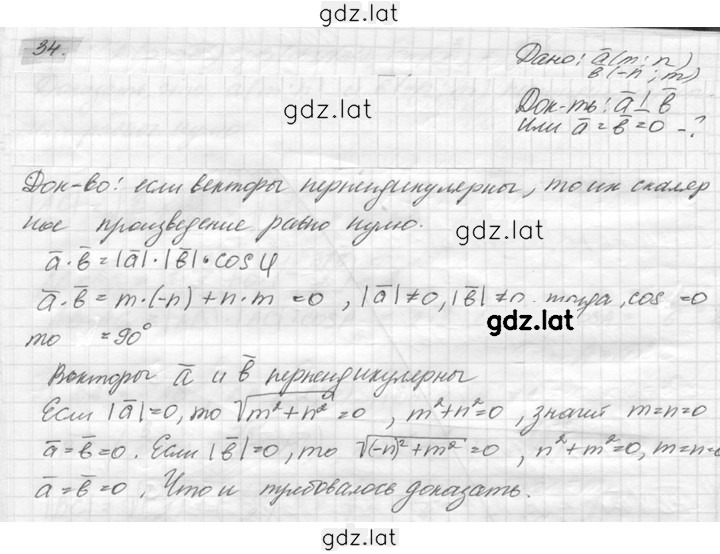 gdz.lat
34.
Дано: a̅(m; n)
b̅(-n; m)
Док-ть: a̅⊥b̅
или a̅=b̅=0 -?
gdz.lat
Док-во: если векторы перпендикулярны, то их скаляр
ное произведение равно нулю.
gdz.lat
a̅·b̅=|a̅|·|b̅|·cosφ
a̅·b̅=m·(-n)+n·m=0, |a̅|≠0, |b̅|≠0. тогда, cos =0
gdz.lat
то =90°
Векторы a̅ и b̅ перпендикулярны
Если |a̅|=0, то √m²+n²=0, m²+n²=0, значит m=n=0
a̅=b̅=0. Если |b̅|=0, то √(-n)²+m²=0, n²+m²=0, m=n=0
a̅=b̅=0. Что и требовалось доказать.
gdz.lat